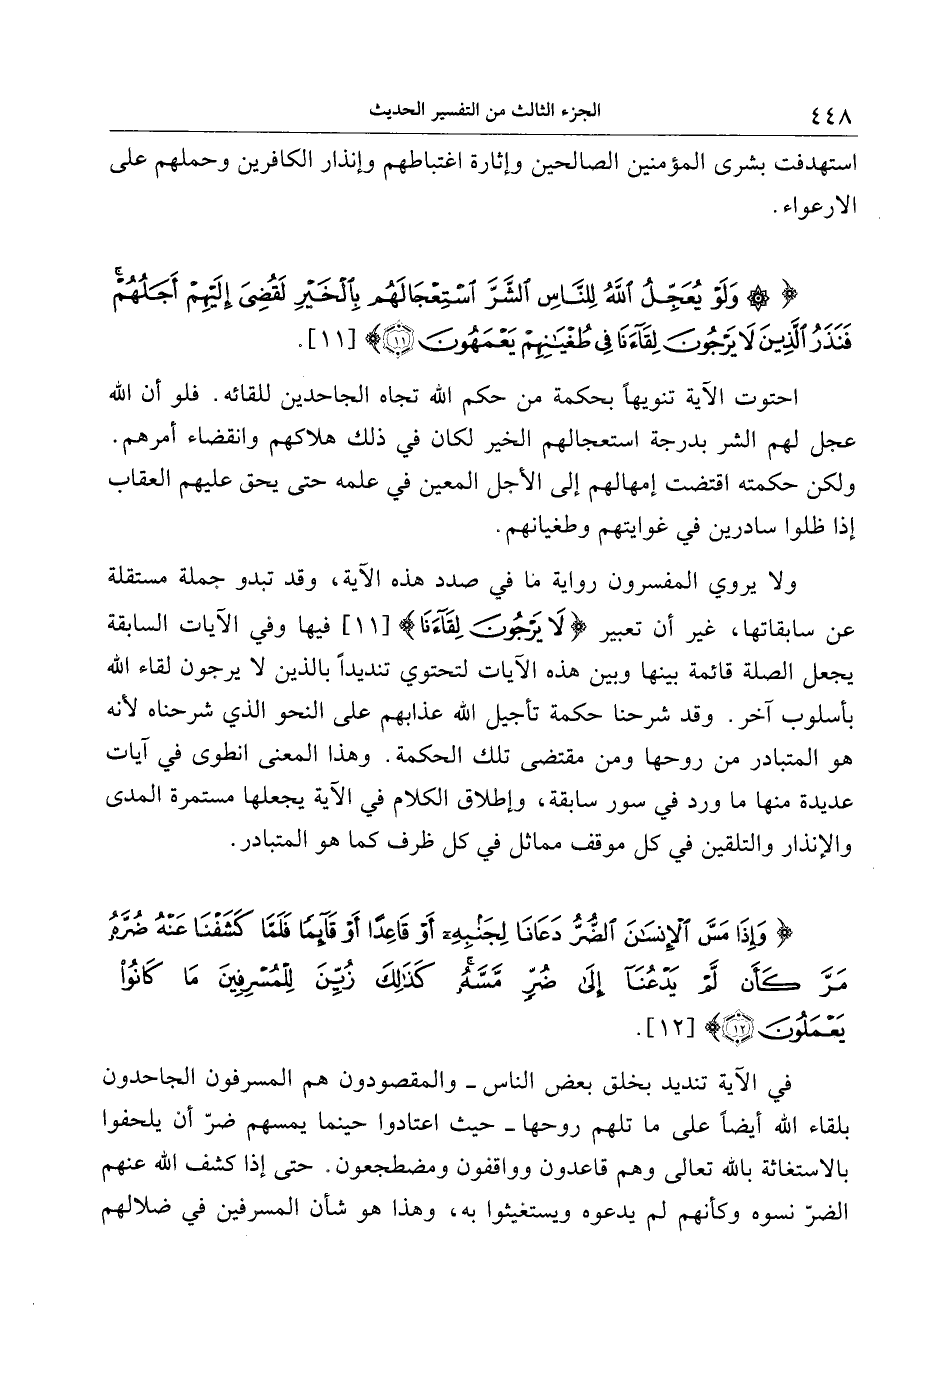 ٤٤٨ الجزء الثالث من التفسير الحديث
استهدفت بشرى المؤمنين الصالحين وإثارة اغتباطهم وإنذار الكافرين وحملهم على
الارعواء.
﴿ ۞ وَلَوْ يُعَجِّلُ ٱللَّهُ لِلنَّاسِ ٱلشَّرَّ ٱسْتِعْجَالَهُم بِٱلْخَيْرِ لَقُضِىَ إِلَيْهِمْ أَجَلُهُمْۖ
فَنَذَرُ ٱلَّذِينَ لَا يَرْجُونَ لِقَآءَنَا فِى طُغْيَٰنِهِمْ يَعْمَهُونَ ١١﴾ [١١].
احتوت الآية تنويهاً بحكمة من حكم الله تجاه الجاحدين للقائه. فلو أن الله
عجل لهم الشر بدرجة استعجالهم الخير لكان في ذلك هلاكهم وانقضاء أمرهم.
ولكن حكمته اقتضت إمهالهم إلى الأجل المعين في علمه حتى يحق عليهم العقاب
إذا ظلوا سادرين في غوايتهم وطغيانهم.
ولا يروي المفسرون رواية ما في صدد هذه الآية، وقد تبدو جملة مستقلة
عن سابقاتها، غير أن تعبير ﴿لَا يَرْجُونَ لِقَآءَنَا﴾ [١١] فيها وفي الآيات السابقة
يجعل الصلة قائمة بينها وبين هذه الآيات لتحتوي تنديداً بالذين لا يرجون لقاء الله
بأسلوب آخر. وقد شرحنا حكمة تأجيل الله عذابهم على النحو الذي شرحناه لأنه
هو المتبادر من روحها ومن مقتضى تلك الحكمة. وهذا المعنى انطوى في آيات
عديدة منها ما ورد في سور سابقة، وإطلاق الكلام في الآية يجعلها مستمرة المدى
والإنذار والتلقين في كل موقف مماثل في كل ظرف كما هو المتبادر.
﴿ وَإِذَا مَسَّ ٱلْإِنسَٰنَ ٱلضُّرُّ دَعَانَا لِجَنۢبِهِۦٓ أَوْ قَاعِدًا أَوْ قَآئِمًا فَلَمَّا كَشَفْنَا عَنْهُ ضُرَّهُۥ
مَرَّ كَأَن لَّمْ يَدْعُنَآ إِلَىٰ ضُرٍّ مَّسَّهُۥۚ كَذَٰلِكَ زُيِّنَ لِلْمُسْرِفِينَ مَا كَانُوا۟
يَعْمَلُونَ ١٢﴾ [١٢].
في الآية تنديد بخلق بعض الناس ـ والمقصودون هم المسرفون الجاحدون
بلقاء الله أيضاً على ما تلهم روحها ـ حيث اعتادوا حينما يمسهم ضرّ أن يلحفوا
بالاستغاثة بالله تعالى وهم قاعدون وواقفون ومضطجعون. حتى إذا كشف الله عنهم
الضرّ نسوه وكأنهم لم يدعوه ويستغيثوا به، وهذا هو شأن المسرفين في ضلالهم